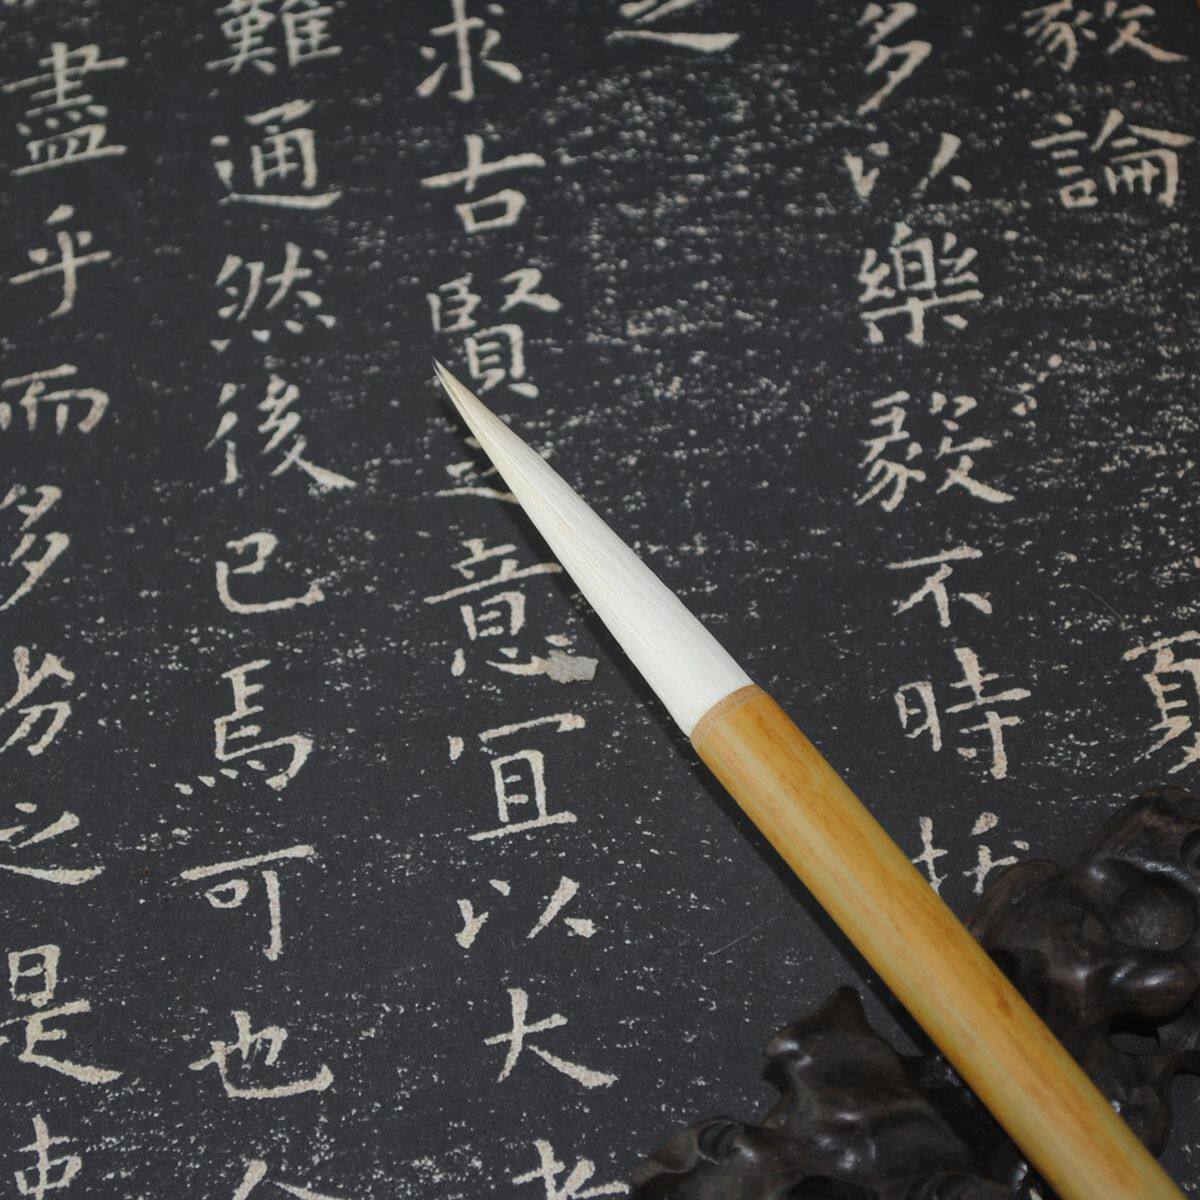 毅論　夏
多以樂毅不時拔
之
求古賢之意宜以大者
難通然後已焉可也今
盡乎而多劣之是使